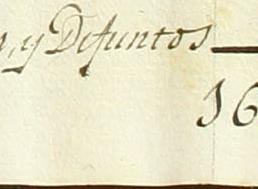 y Defuntos
16